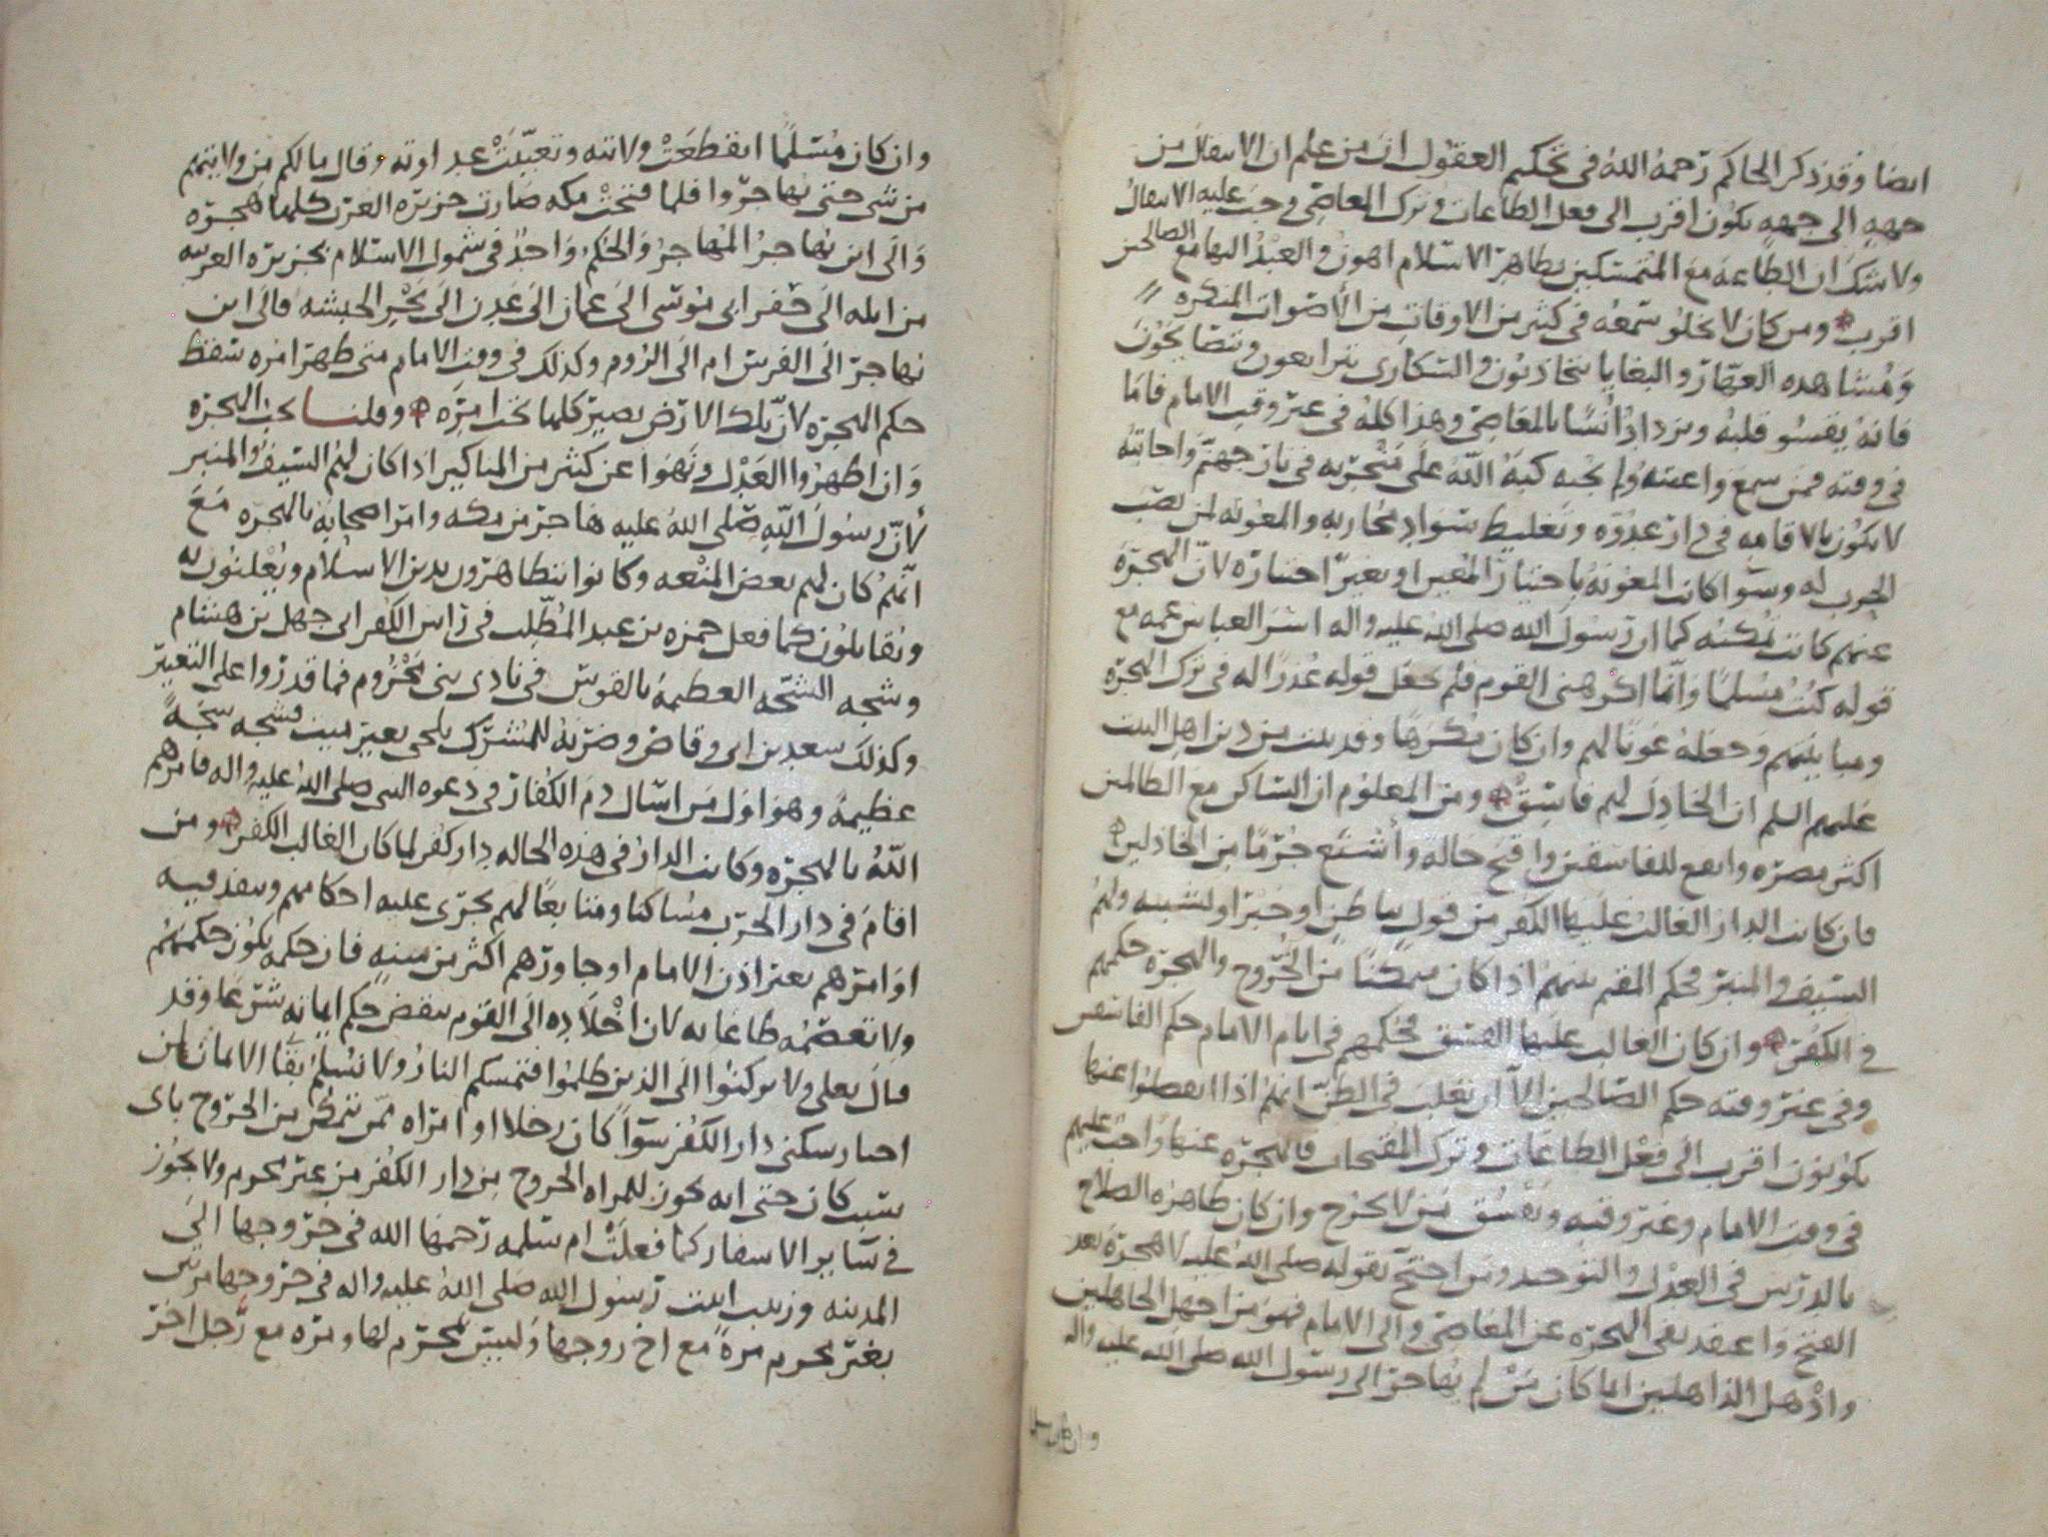 ايضا وقد ذكر الحاكم رحمه الله في تحكيم العقول ان من علم ان الانتقال من
جهه الى جهه يكون اقرب الى فعل الطاعات وترك المعاصي وجب عليه الانتقال
ولا شك ان الطاعه مع المتمسكين بظاهر الاسلام اهون والعبد اليها مع الصالحين
اقرب ومن كان لا يخلو سمعه في كثير من الاوقات من الأصوات المنكره
ومشاهده العهار والبغايا يتحادثون والسكارى يتراتعون ويتضايحون
فانه يقسو قلبه ويزداد انسًا بالمعاصي وهذا كله في غير وقت الامام فاما
في وقته فمن سمع واعيته ولم يجبه كبه الله على منخريه في نار جهنم واجابته
لا يكون بالاقامه في دار عدوه وتغليظ سواد محاربه والمعونه لمن نصب
الحرب له وسوا كانت المعونه باختيار المعين او بغير اختياره لان الهجره
عنهم كانت تمكنه كما ان رسول الله صلى الله عليه واله اسر العباس عمه مع
قوله كنت مسلما وانما اكرهني القوم فلم يجعل قوله عذرا له في ترك الهجره
ومباينتهم وجعله عونا لهم وان كان مكرها وقد ثبت من دين اهل البيت
عليهم السلم ان الخاذل لهم فاسق ومن المعلوم ان الساكن مع الظالمين
اكثر مضره وانفع للفاسقين واقبح حاله وأشنع جرمًا من الخاذلين
فان كانت الدار الغالب عليها الكفر من قول بباطن او جبر او تشبيه ولهم
السيف والمنبر فحكم المقيم بينهم اذا كان متمكنًا من الخروج والهجره حكمهم
في الكفر وان كان الغالب عليها الفسق فحكمهم في ايام الامام حكم الفاسقين
وفي غير وقته حكم الصالحين الا ان يغلب في الظن انهم اذا انفصلوا عنها
يكونون اقرب الى فعل الطاعات وترك المقبحات فالهجره عنها واجب عليهم
في وقت الامام وغير وقته ويفسق من لا يخرج وان كان ظاهره الصلاح
بالدرس في العدل والتوحيد ومن احتج بقوله صلى الله عليه لا هجره بعد
الفتح واعتقد نفى الهجره عن المعاصي والى الامام فهو من اجهل الجاهلين
واذهل الذاهلين انما كان من لم يهاجر الى رسول الله صلى الله عليه واله
وان كان مسلما
وان كان مسلمًا انقطعت ولايته وتعينت عداوته وقال مالكم من ولايتهم
من شي حتى يهاجروا فلما فتحت مكه صارت جزيره العرب كلها هجره
والى اين يهاجر المهاجر والحكم واحد في شمول الاسلام بجزيره العرب
من ايله الى حفر ابي موسى الى عمان الى عدن الى بحر الحبشه فالى اين
يهاجر الى الفرس ام الى الروم وكذلك في وقت الامام متى ظهر امره سقط
حكم الهجره لان تلك الارض تصير كلها تحت امره وقلنا تجب الهجره
وان اظهروا العدل ونهوا عن كثير من المناكير اذا كان لهم السيف والمنبر
لأن رسول الله صلى الله عليه هاجر من مكه وامر اصحابه بالهجره مع
انهم كان لهم بعض المنعه وكانوا يتظاهرون بدين الاسلام ويعلنون به
ويقاتلون كما فعل حمزه بن عبد المطلب في راس الكفر ابي جهل بن هشام
وشجه الشجه العظيمه بالقوس في نادى بني مخزوم فما قدروا على التغيير
وكذلك سعد بن ابي وقاص وضربه للمشرك بلحي بعير ميت فشجه شجة
عظيمة وهو اول من اسال دم الكفار في دعوه النبي صلى الله عليه واله فامرهم
الله بالهجره وكانت الدار في هذه الحاله دار كفر لما كان الغالب الكفر ومن
اقام في دار الحرب مساكنا ومتابعًا لهم يجرى عليه احكامهم وينفذ فيه
اوامرهم بغير اذن الامام او جاورهم اكثر من سنه فان حكمه يكون حكمهم
ولا تعصمه طاعاته لان اخلاده الى القوم ينقض حكم ايمانه شرعًا وقد
قال تعلى ولا تركنوا الى الذين ظلموا فتمسكم النار ولا نسلم بقا الامان لمن
اختار سكنى دار الكفر سوًا كان رجلا او امراه ممن يتمكن من الخروج باى
سبب كان حتى انه يجوز للمراه الخروج من دار الكفر من غير محرم ولا يجوز
في ساير الاسفار كما فعلت ام سلمه رحمها الله في خروجها الى
المدينه وزينب ابنت رسول الله صلى الله عليه واله في خروجها مرتين
بغير محرم مرة مع اخ زوجها وليس بمحرم لها ومره مع رجل اخر